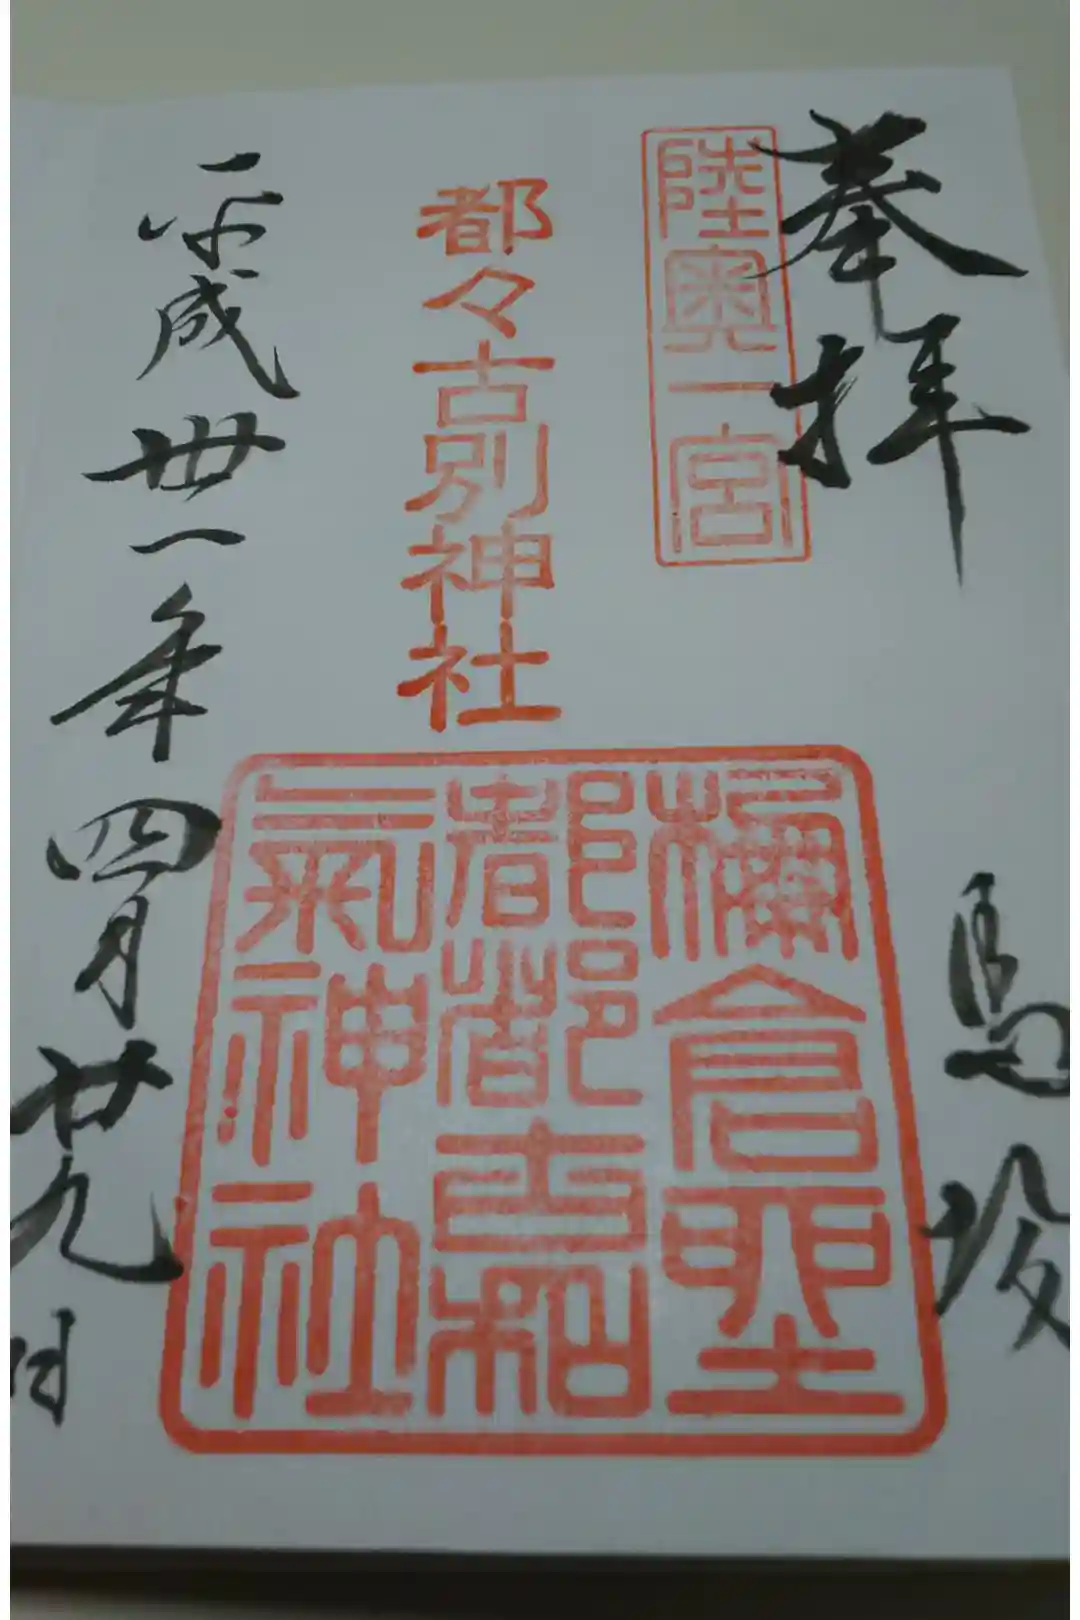 奉拝
馬場
陸奥一宮
都々古別神社
棚倉坐
都都古和
氣神社
平成丗一年四月廿九日